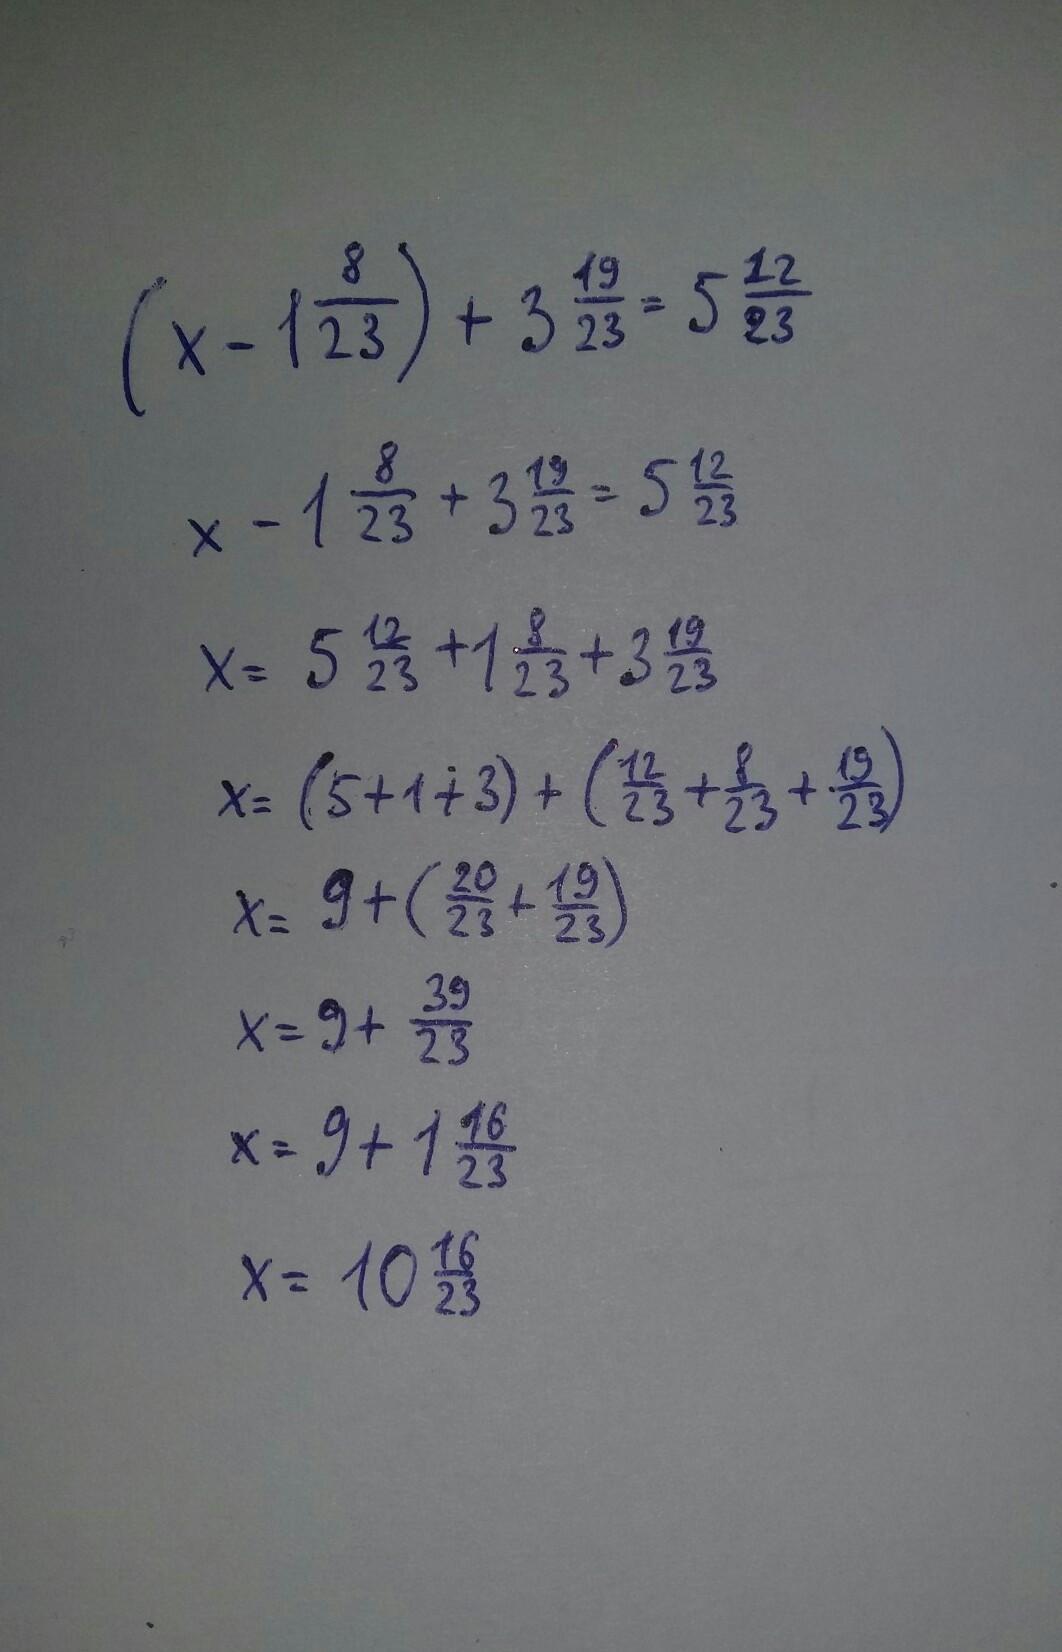 (x - 1 8/23) + 3 19/23 = 5 12/23
x - 1 8/23 + 3 19/23 = 5 12/23
x = 5 12/23 + 1 8/23 + 3 19/23
x = (5+1+3) + (12/23 + 8/23 + 19/23)
x = 9 + (20/23 + 19/23)
x = 9 + 39/23
x = 9 + 1 16/23
x = 10 16/23